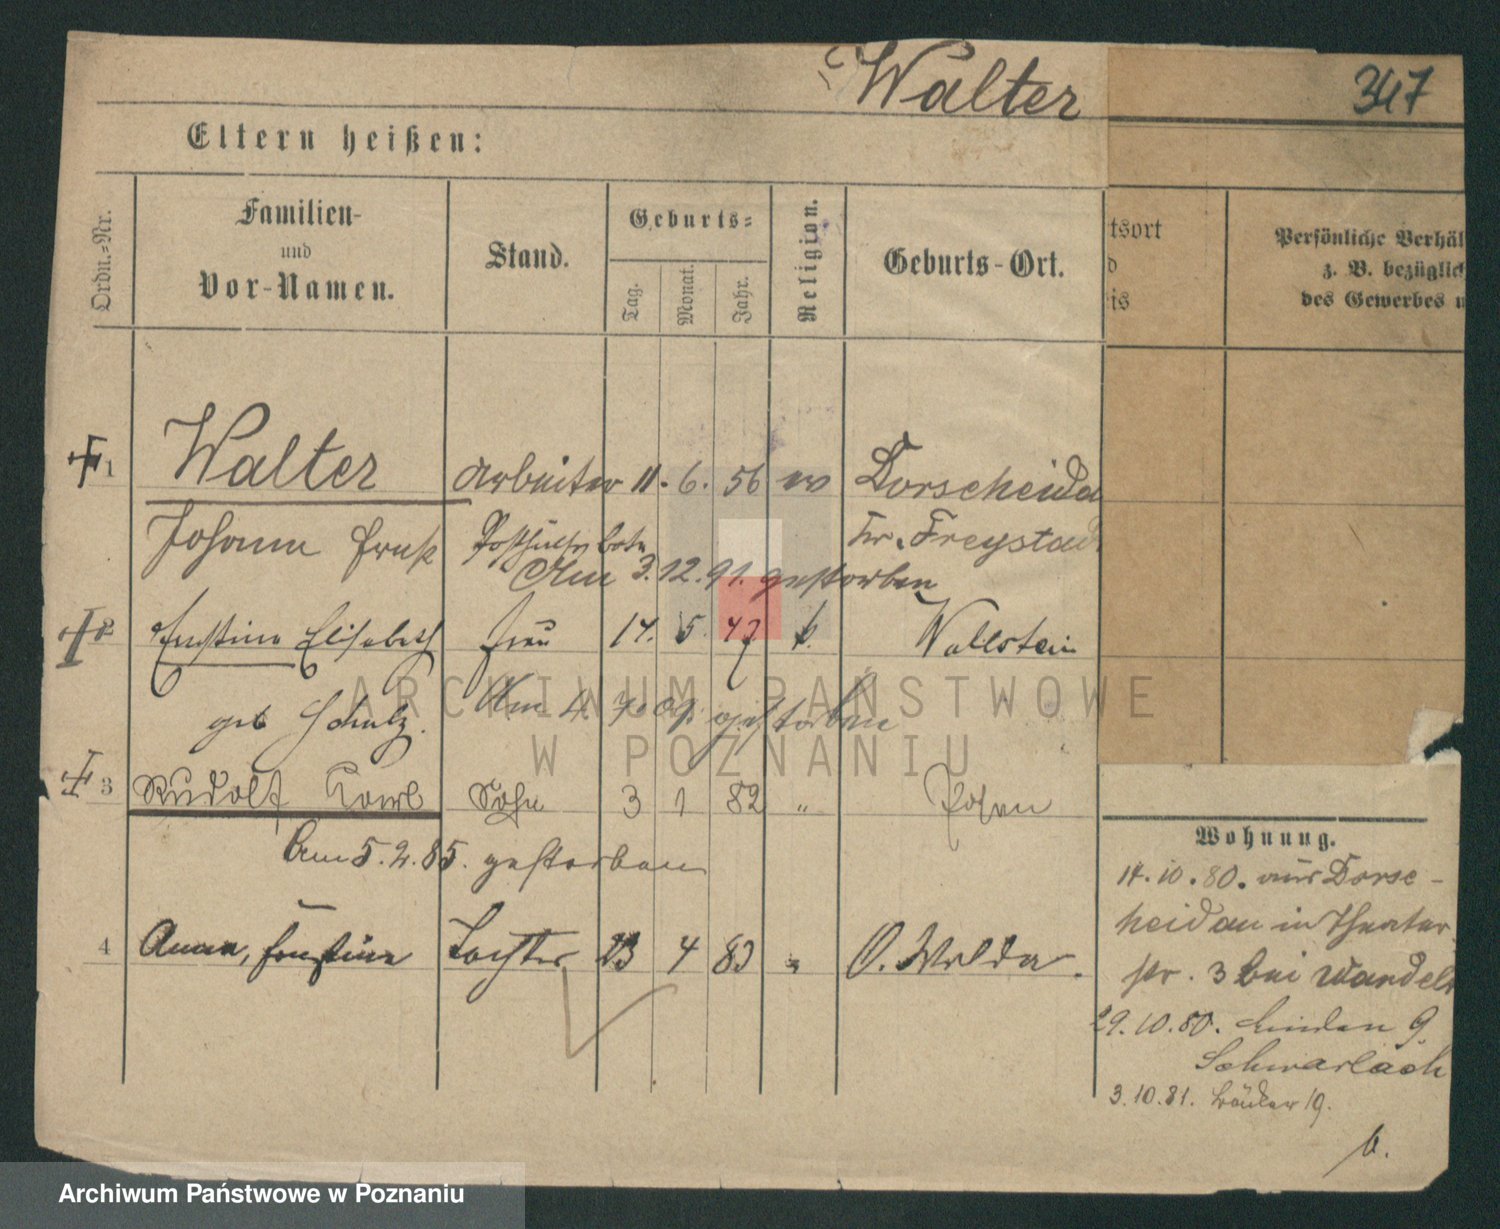 Walter
347
Eltern heißen:
Ordn.-Nr.
Familien-
und
Vor-Namen.
Stand.
Geburts-
Tag.
Monat.
Jahr.
Religion.
Geburts-Ort.
tsort
d
is
Persönliche Verhäl
z. B. bezüglich
des Gewerbes u
1 Walter Arbeiter 11. 6. 56 ev Dorscheida
Johann Ernst Posthülfsbote Kr. Freystadt
Am 3.12.91. gestorben
2 Ernstine Elisabeth Frau 14. 5. 47 k. Wollstein
geb Schulz. Am 4. 7. 01 gestorben
3 Rudolf Karl Sohn 3 1 82 " Posen
Am 5.2.85. gestorben
4 Anna, Ernstine Tochter 23 4 83 " O. Wilda.
Wohnung.
14.10.80. aus Dorse-
heidau in Theater
str. 3 bei Wandelt
29.10.80. Linden 9.
Schwarlach
3.10.81. Bäcker 19.
b.
ARCHIWUM PAŃSTWOWE
W POZNANIU
Archiwum Państwowe w Poznaniu